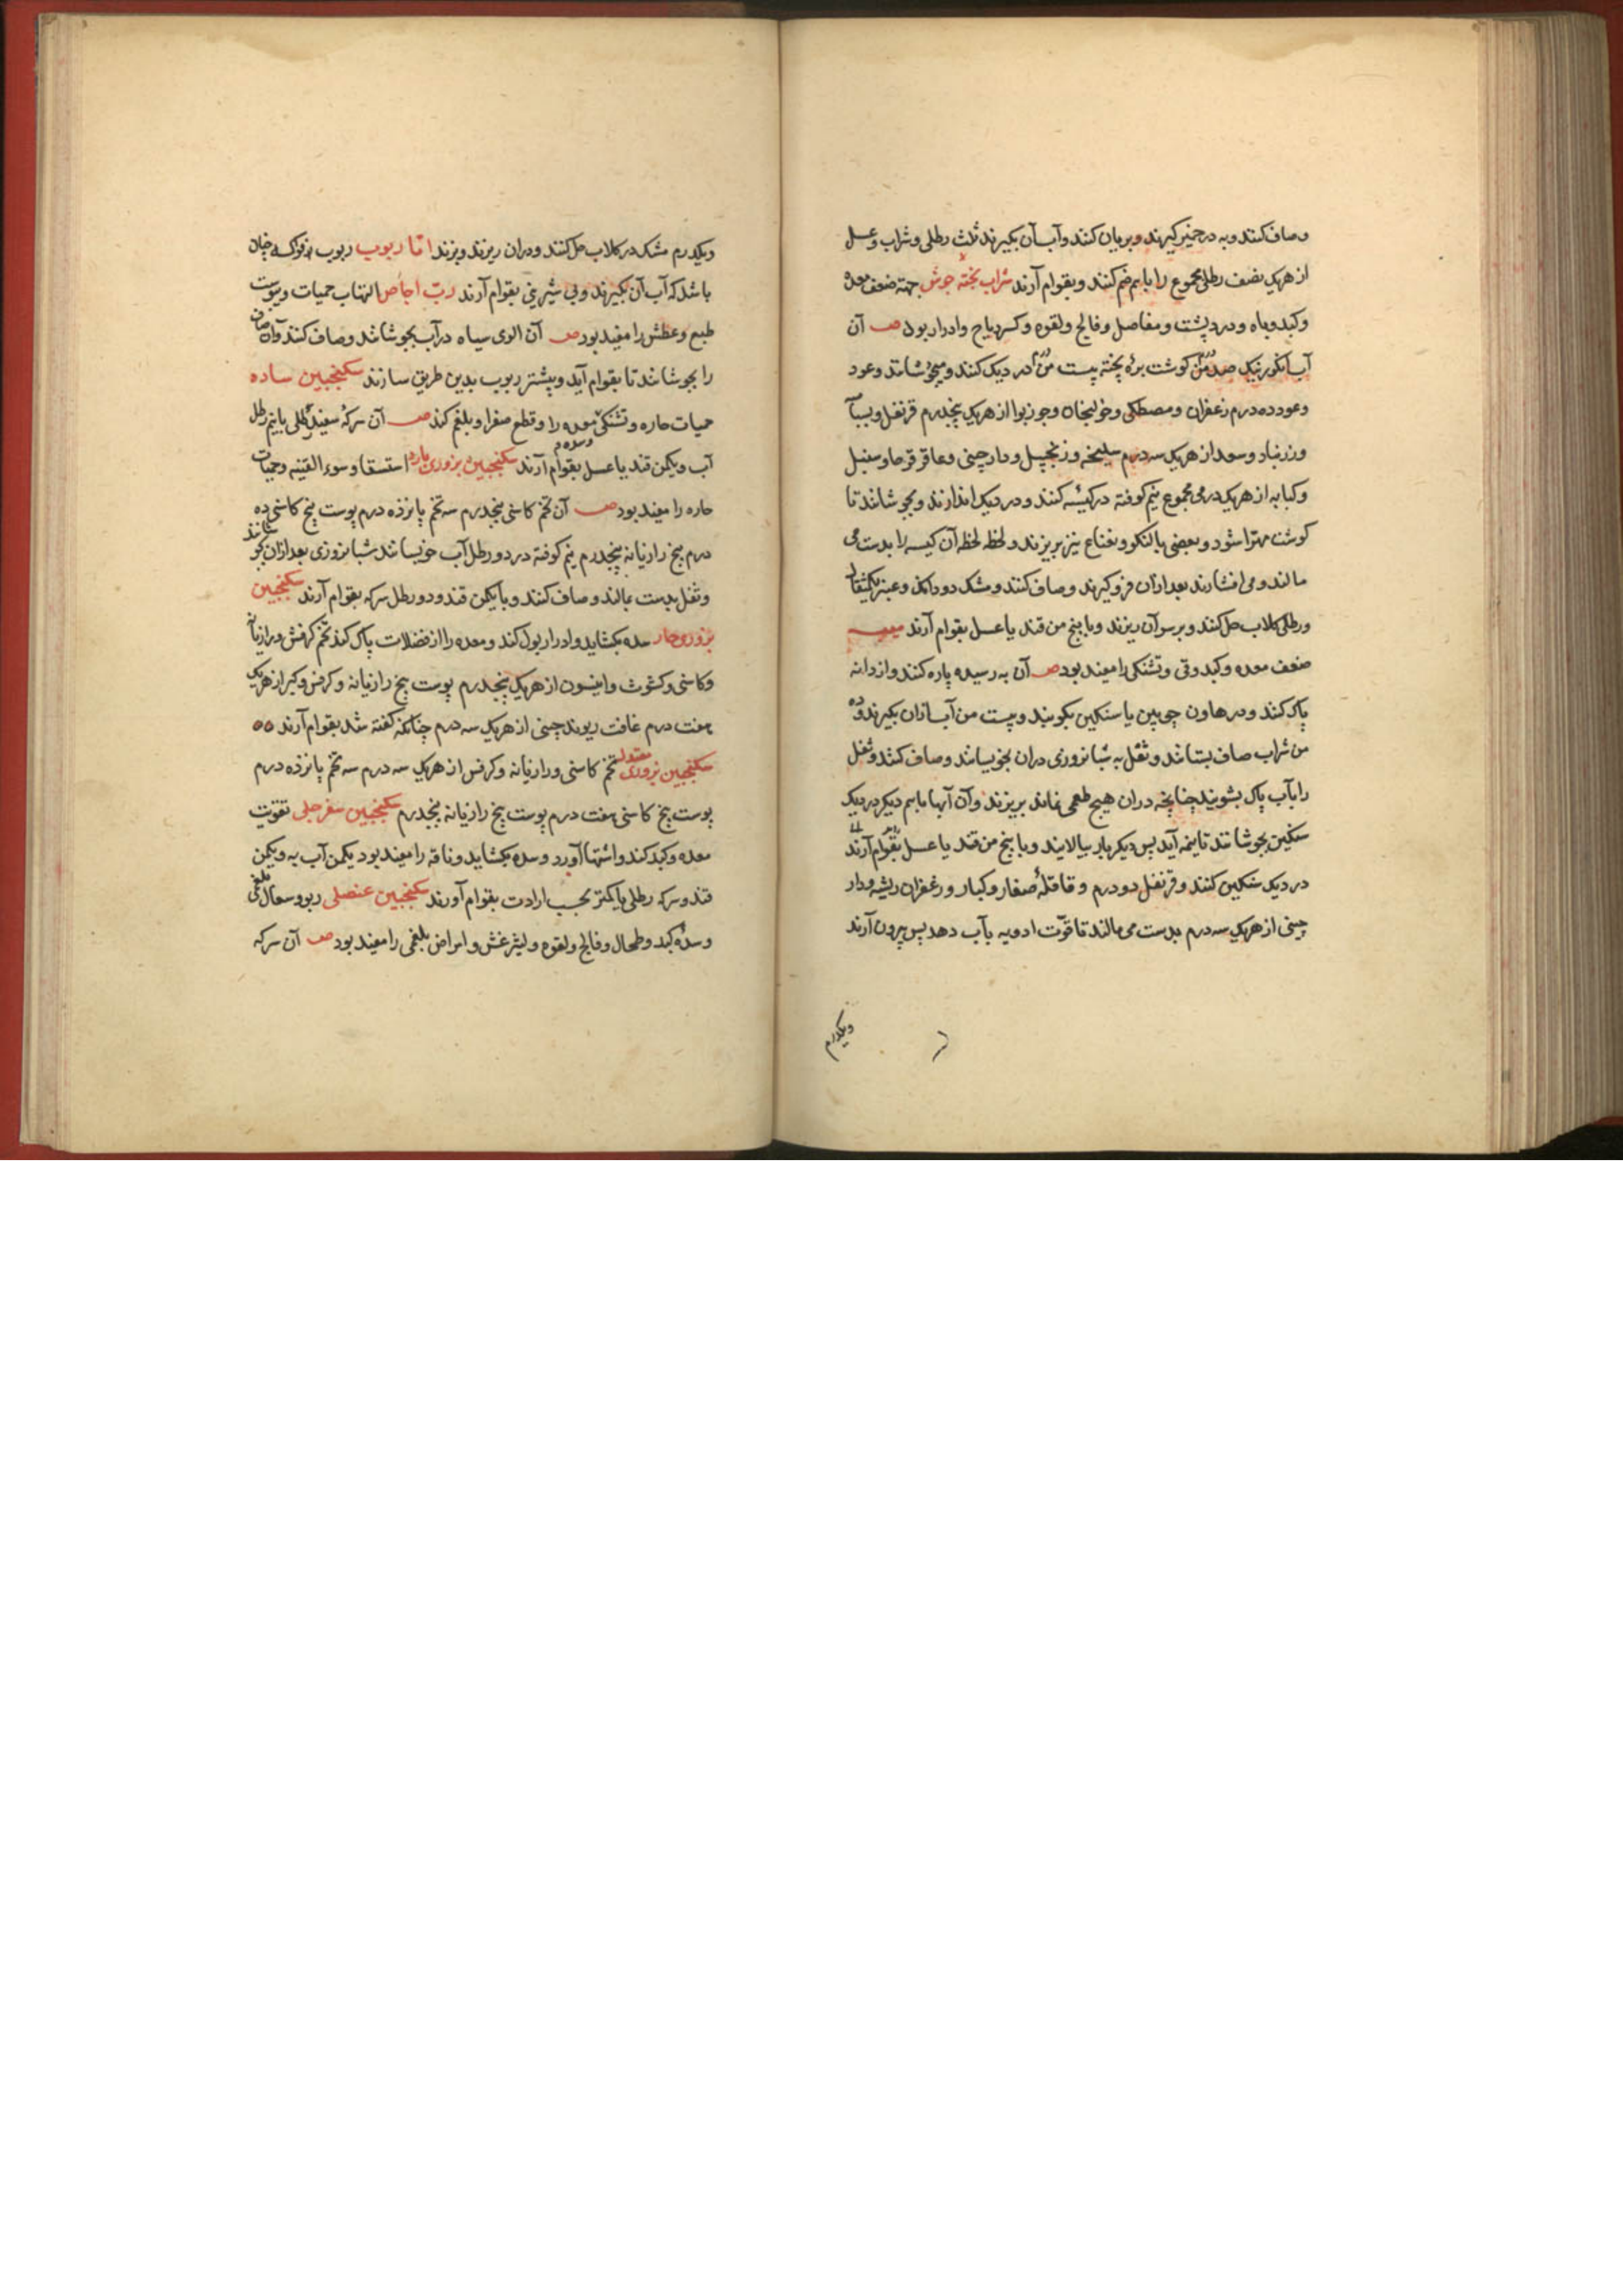 و صاف کنند و به در خمیر گیرند و بریان کنند و آب آن بگیرند ثلث رطلی و شراب و عسل
از هریک نصف رطلی مجموع را با هم ضم کنند و بقوام آرند شراب پخته جوش جهة ضعف معده
و کبد و باه و درد پشت و مفاصل و فالج و لقوه و کسر ریاح و ادرار بول صـ آن
آب انگور نیک صد من گوشت بره پخته بیست من در دیک کنند و میجوشانند و عود
و عود ده درم زعفران و مصطکی و خولنجان و جوزبوا از هریک پنجدرم قرنفل و بسبا
و زرنباد و سعد از هریک سه درم سلیخه و زنجبیل و دارچینی و عاقرقرحا و سنبل
و کبابه از هریک درمی مجموع نیم کوفته در کیسه کنند و در دیک اندازند و بجوشانند تا
گوشت مهرا شود و بعضی بالنکو و نعناع نیز بریزند و لحظه لحظه آن کیسه را بدست می
مالند و می افشارند بعد ازان فرو گیرند و صاف کنند و مشک دو دانک و عنبر یکمثقال
در رطلی کلاب حل کنند و بر سر آن ریزند و با پنج من قند یا عسل بقوام آرند میبه
ضعف معده و کبد و قی و تشنکی را مفید بود صـ آن به رسیده پاره کنند و از دانه
پاک کنند و در هاون چوبین یا سنکین بکوبند و بیست من آب ازان بگیرند و ده
من شراب صاف بستانند و ثفل به شبانروزی دران بخویسانند و صاف کنند و ثفل
را بآب پاک بشویند چنانچه دران هیچ طعمی نماند بریزند و آن آبها با هم دیگر در دیک
سنکین بجوشانند تا بنیمه آید پس دیگر بار بپالایند و با پنج من قند یا عسل بقوام آرند
در دیک سنکین کنند و قرنفل دو درم و قاقلهٔ صغار و کبار و زعفران ریشه و دار
چینی از هریک سه درم بدست می مالند تا قوّت ادویه بآب دهد پس بیرون آرند
ویکدرم
ویکدرم مشک در کلاب حل کنند و دران ریزند و بزند امّا ربوب ربوب هر فواکه چنان
باشد که آب آن بگیرند و بی شیرینی بقوام آرند ربّ اجاص التهاب حمیات و یبوست
طبع و عطش را مفید بود صـ آن الوی سیاه در آب بجوشانند و صاف کنند و آن صاف
را بجوشانند تا بقوام آید و بیشتر ربوب بدین طریق سازند سکنجبین ساده
حمیات حاره و تشنکی معده را و قطع صفرا و بلغم کند صـ آن سرکهٔ سفید رطلی با نیم رطل
آب و یکمن قند یا عسل بقوام آرند سکنجبین بزوری بارد استسقا و سوء القنیه و حمیات
حاره را مفید بود صـ آن تخم کاسنی پنجدرم سه تخم پانزده درم پوست بیخ کاسنی ده
درم بیخ رازیانه پنجدرم نیم کوفته در دو رطل آب خویسانند شبانروزی بعد ازان بجوشانند
و ثفل بدست بمالند و صاف کنند و با یکمن قند و دو رطل سرکه بقوام آرند سکنجبین
بزوری حار سده بکشاید و ادرار بول کند و معده را از فضلات پاک کند تخم کرفس و رازیانه
و کاسنی و کشوث و انیسون از هریک پنجدرم پوست بیخ رازیانه و کرفس و کبر از هریک
هفت درم غافت ریوند چینی از هریک سه درم چنانکه گفته شد بقوام آرند
سکنجبین بزوری معتدل تخم کاسنی و رازیانه و کرفس از هریک سه درم سه تخم پانزده درم
پوست بیخ کاسنی هفت درم پوست بیخ رازیانه پنجدرم سکنجبین سفرجلی تقویت
معده و کبد کند و اشتها آورد و سده بکشاید و ناقه را مفید بود یکمن آب به و یکمن
قند و سرکه رطلی یا کمتر بحسب ارادت بقوام آورند سکنجبین عنصلی ربو و سعال بلغمی
و سدهٔ کبد و طحال و فالج و لقوه و لیثرغش و امراض بلغمی را مفید بود صـ آن سرکه